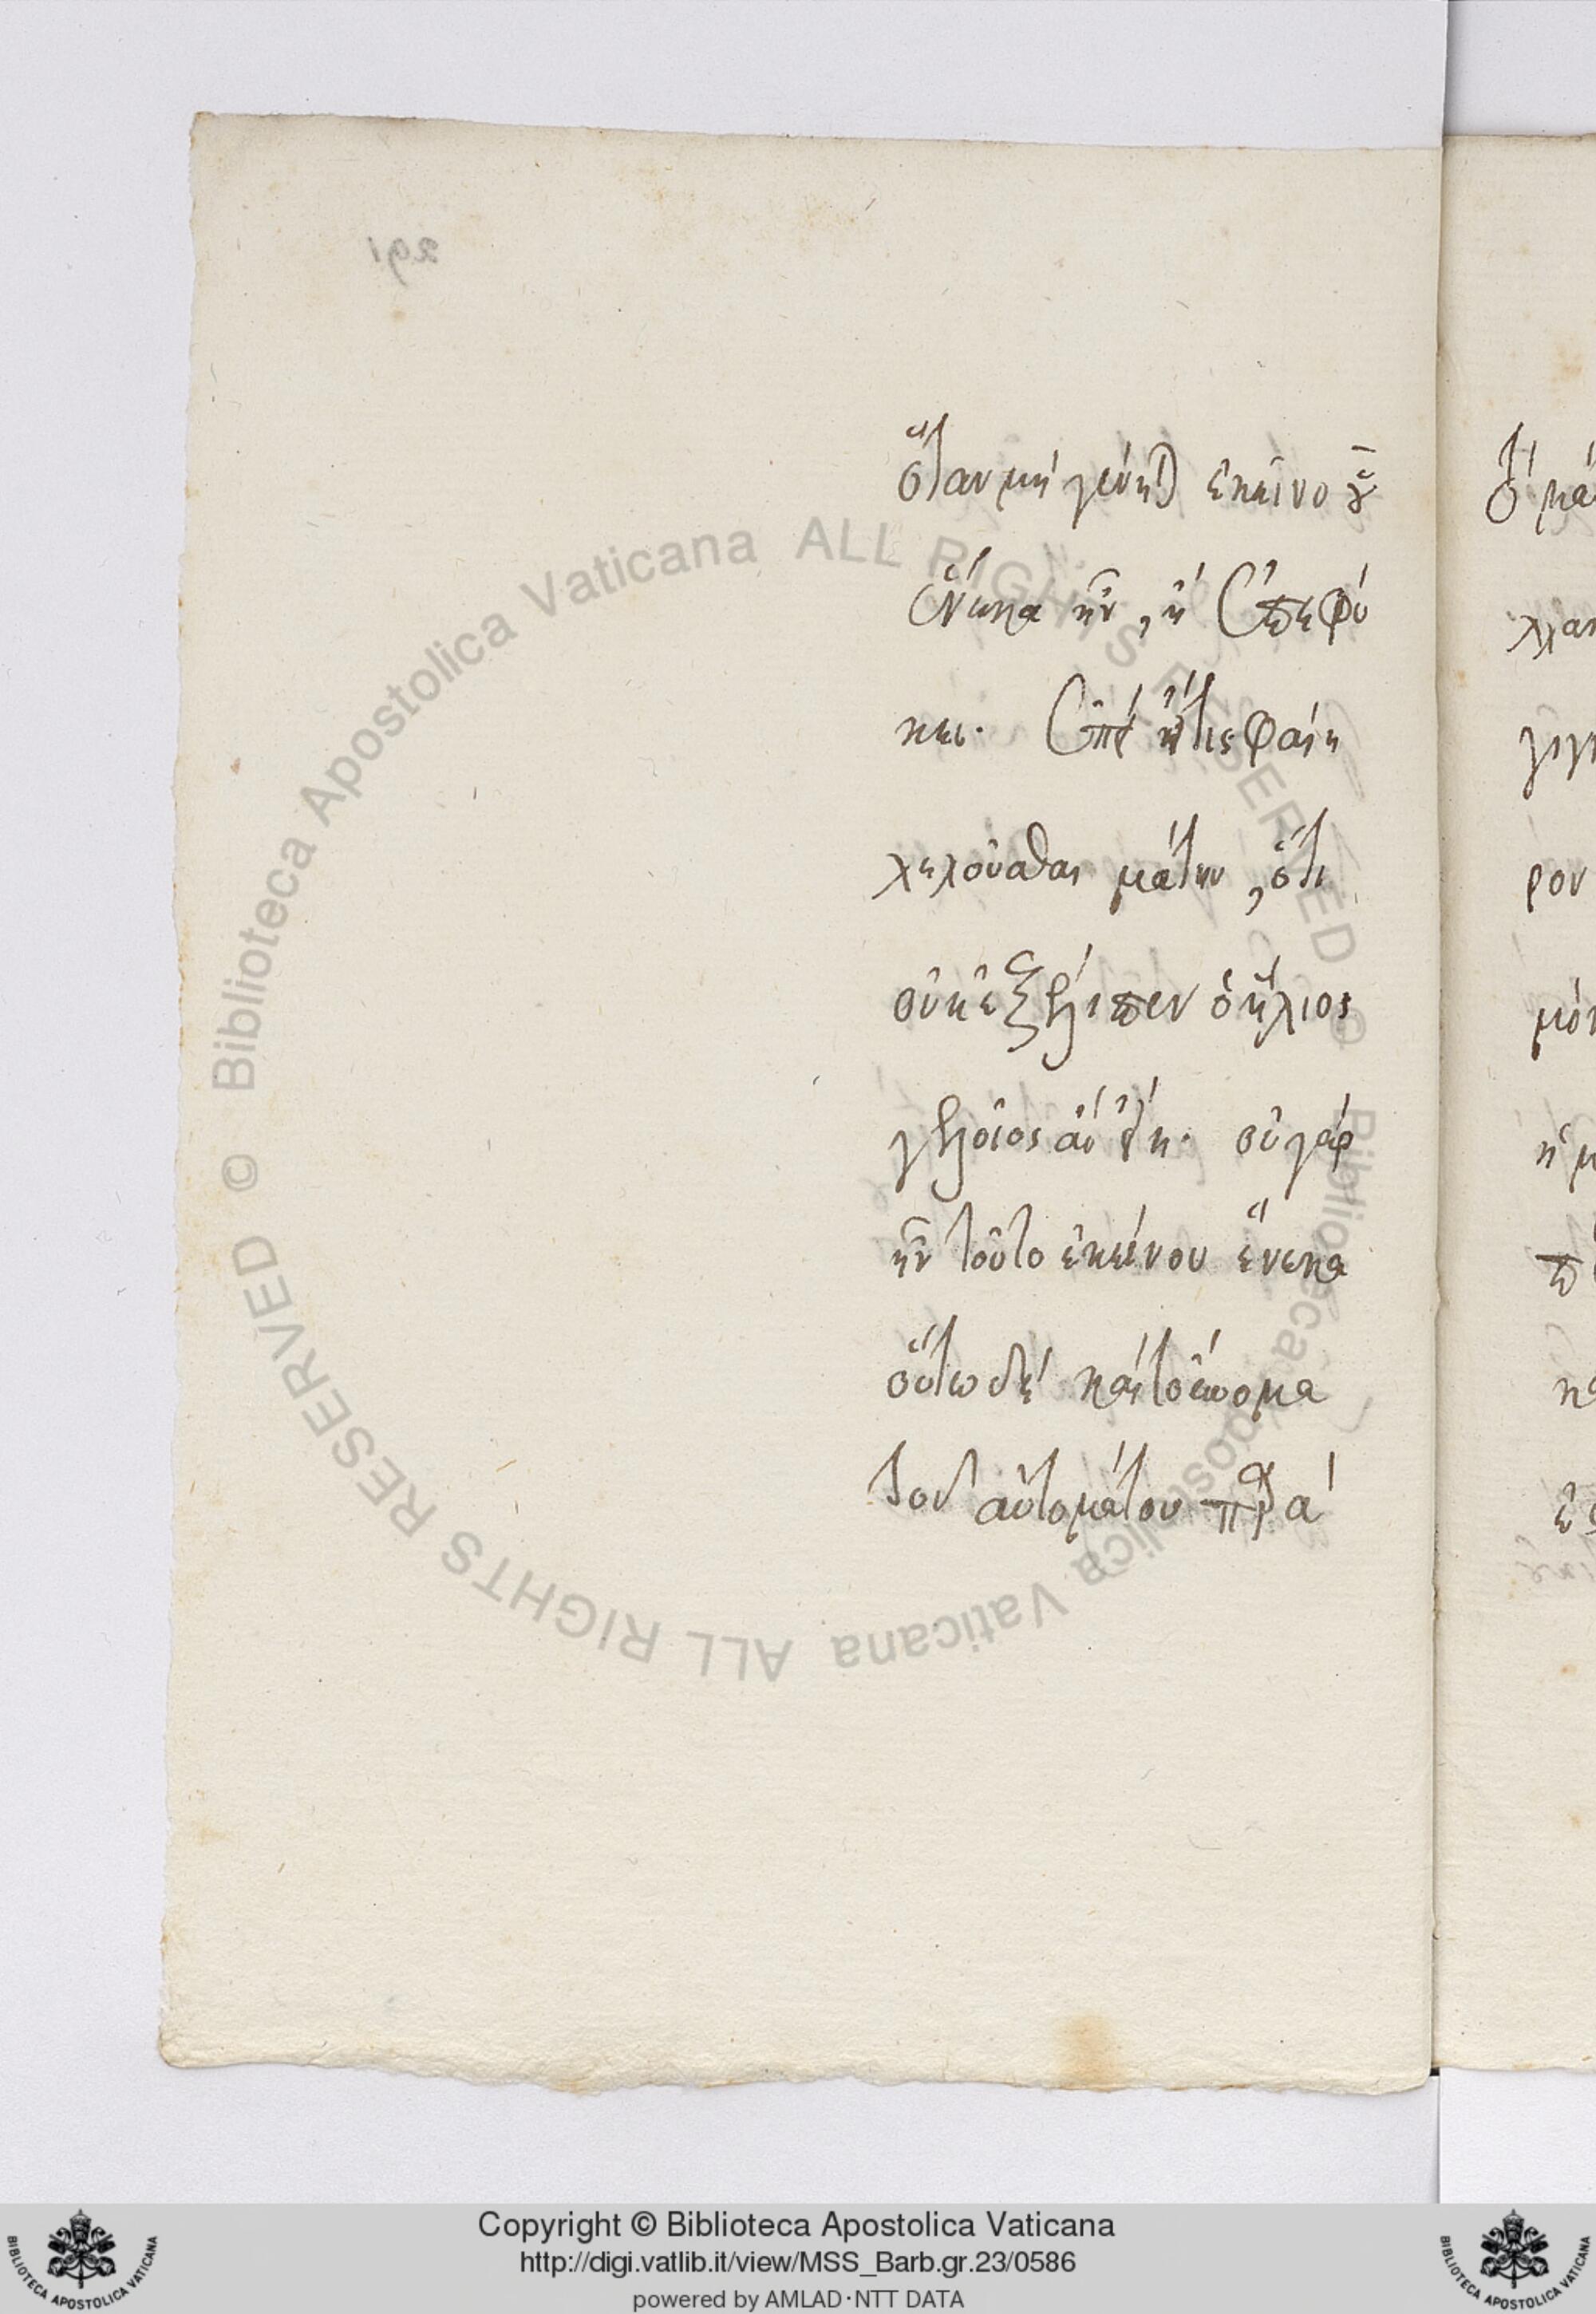 ὅταν μὴ γένηται ἐκεῖνο οὗ
ἕνεκα ἦν, ἢ ἐπεφύ
κει. ἐπεὶ εἴ τις φαίη
λελοῦσθαι μάτην, ὅτι
οὐκ ἐξέλιπεν ὁ ἥλιος
γελοῖος ἂν εἴη. οὐ γὰρ
ἦν τοῦτο ἐκείνου ἕνεκα
οὕτω δὲ καὶ τὸ ὄνομα
τοῦ αὐτομάτου παρὰ
© Biblioteca Apostolica Vaticana ALL RIGHTS RESERVED © Biblioteca Apostolica Vaticana ALL RIGHTS RESERVED
Copyright © Biblioteca Apostolica Vaticana
http://digi.vatlib.it/view/MSS_Barb.gr.23/0586
powered by AMLAD·NTT DATA
BIBLIOTECA APOSTOLICA VATICANA
BIBLIOTECA APOSTOLICA VATICANA